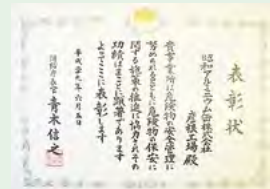 表彰状
昭和アルミニウム缶株式会社
彦根工場殿
貴事業所は危険物の安全管理に
努められるとともに危険物の保安に
関する施策の推進に協力されその
功績はまことに顕著であります
よってここに表彰します
平成二十九年六月五日
消防庁長官 青木信之